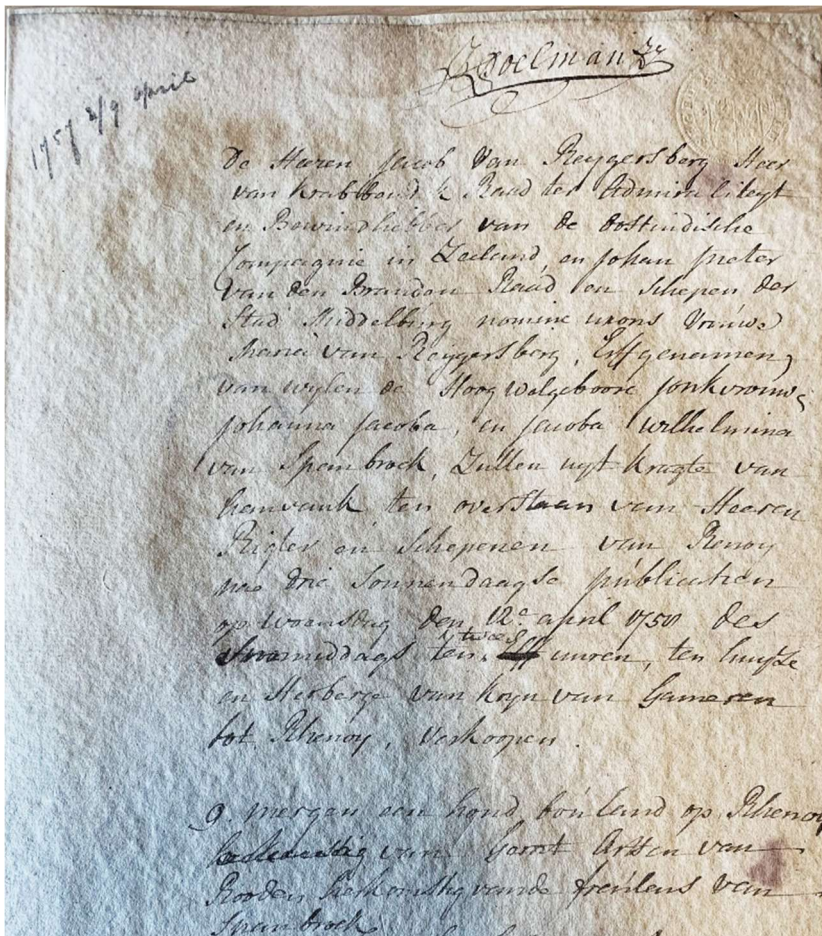 Poelman
1757 2/9 april
De Heeren Jacob Van Reygersberg Heer
van Raad ter Admiraliteyt
en Bewindhebber van de oostindische
Compagnie in Zeeland, en Johan Pieter
van den Brandon Raad en Schepen der
Stad Middelburg nomine uxoris Vrouwe
Maria van Reygersberg, Erffgenamen
van wylen de Hoog welgeboore Jonkvrouwe
Johanna Jacoba, en Jacoba wilhelmina
van Spanbroek, Zullen uyt kragte van
ten overstaan van Heeren
Rigter en Schepenen van Renoy
nae drie Sonnendaagse publicatien
op woensdag den 12e april 1758 des
middags ten twee uuren, ten huyse
en Herberge van Kryn van Gameren
tot Rhenoy, Verkoopen.
9. mergen een hond bouland op Rhenoy
van Gerrit Artsen van
Rooden herkomstig vande freulens van
Spanbroek